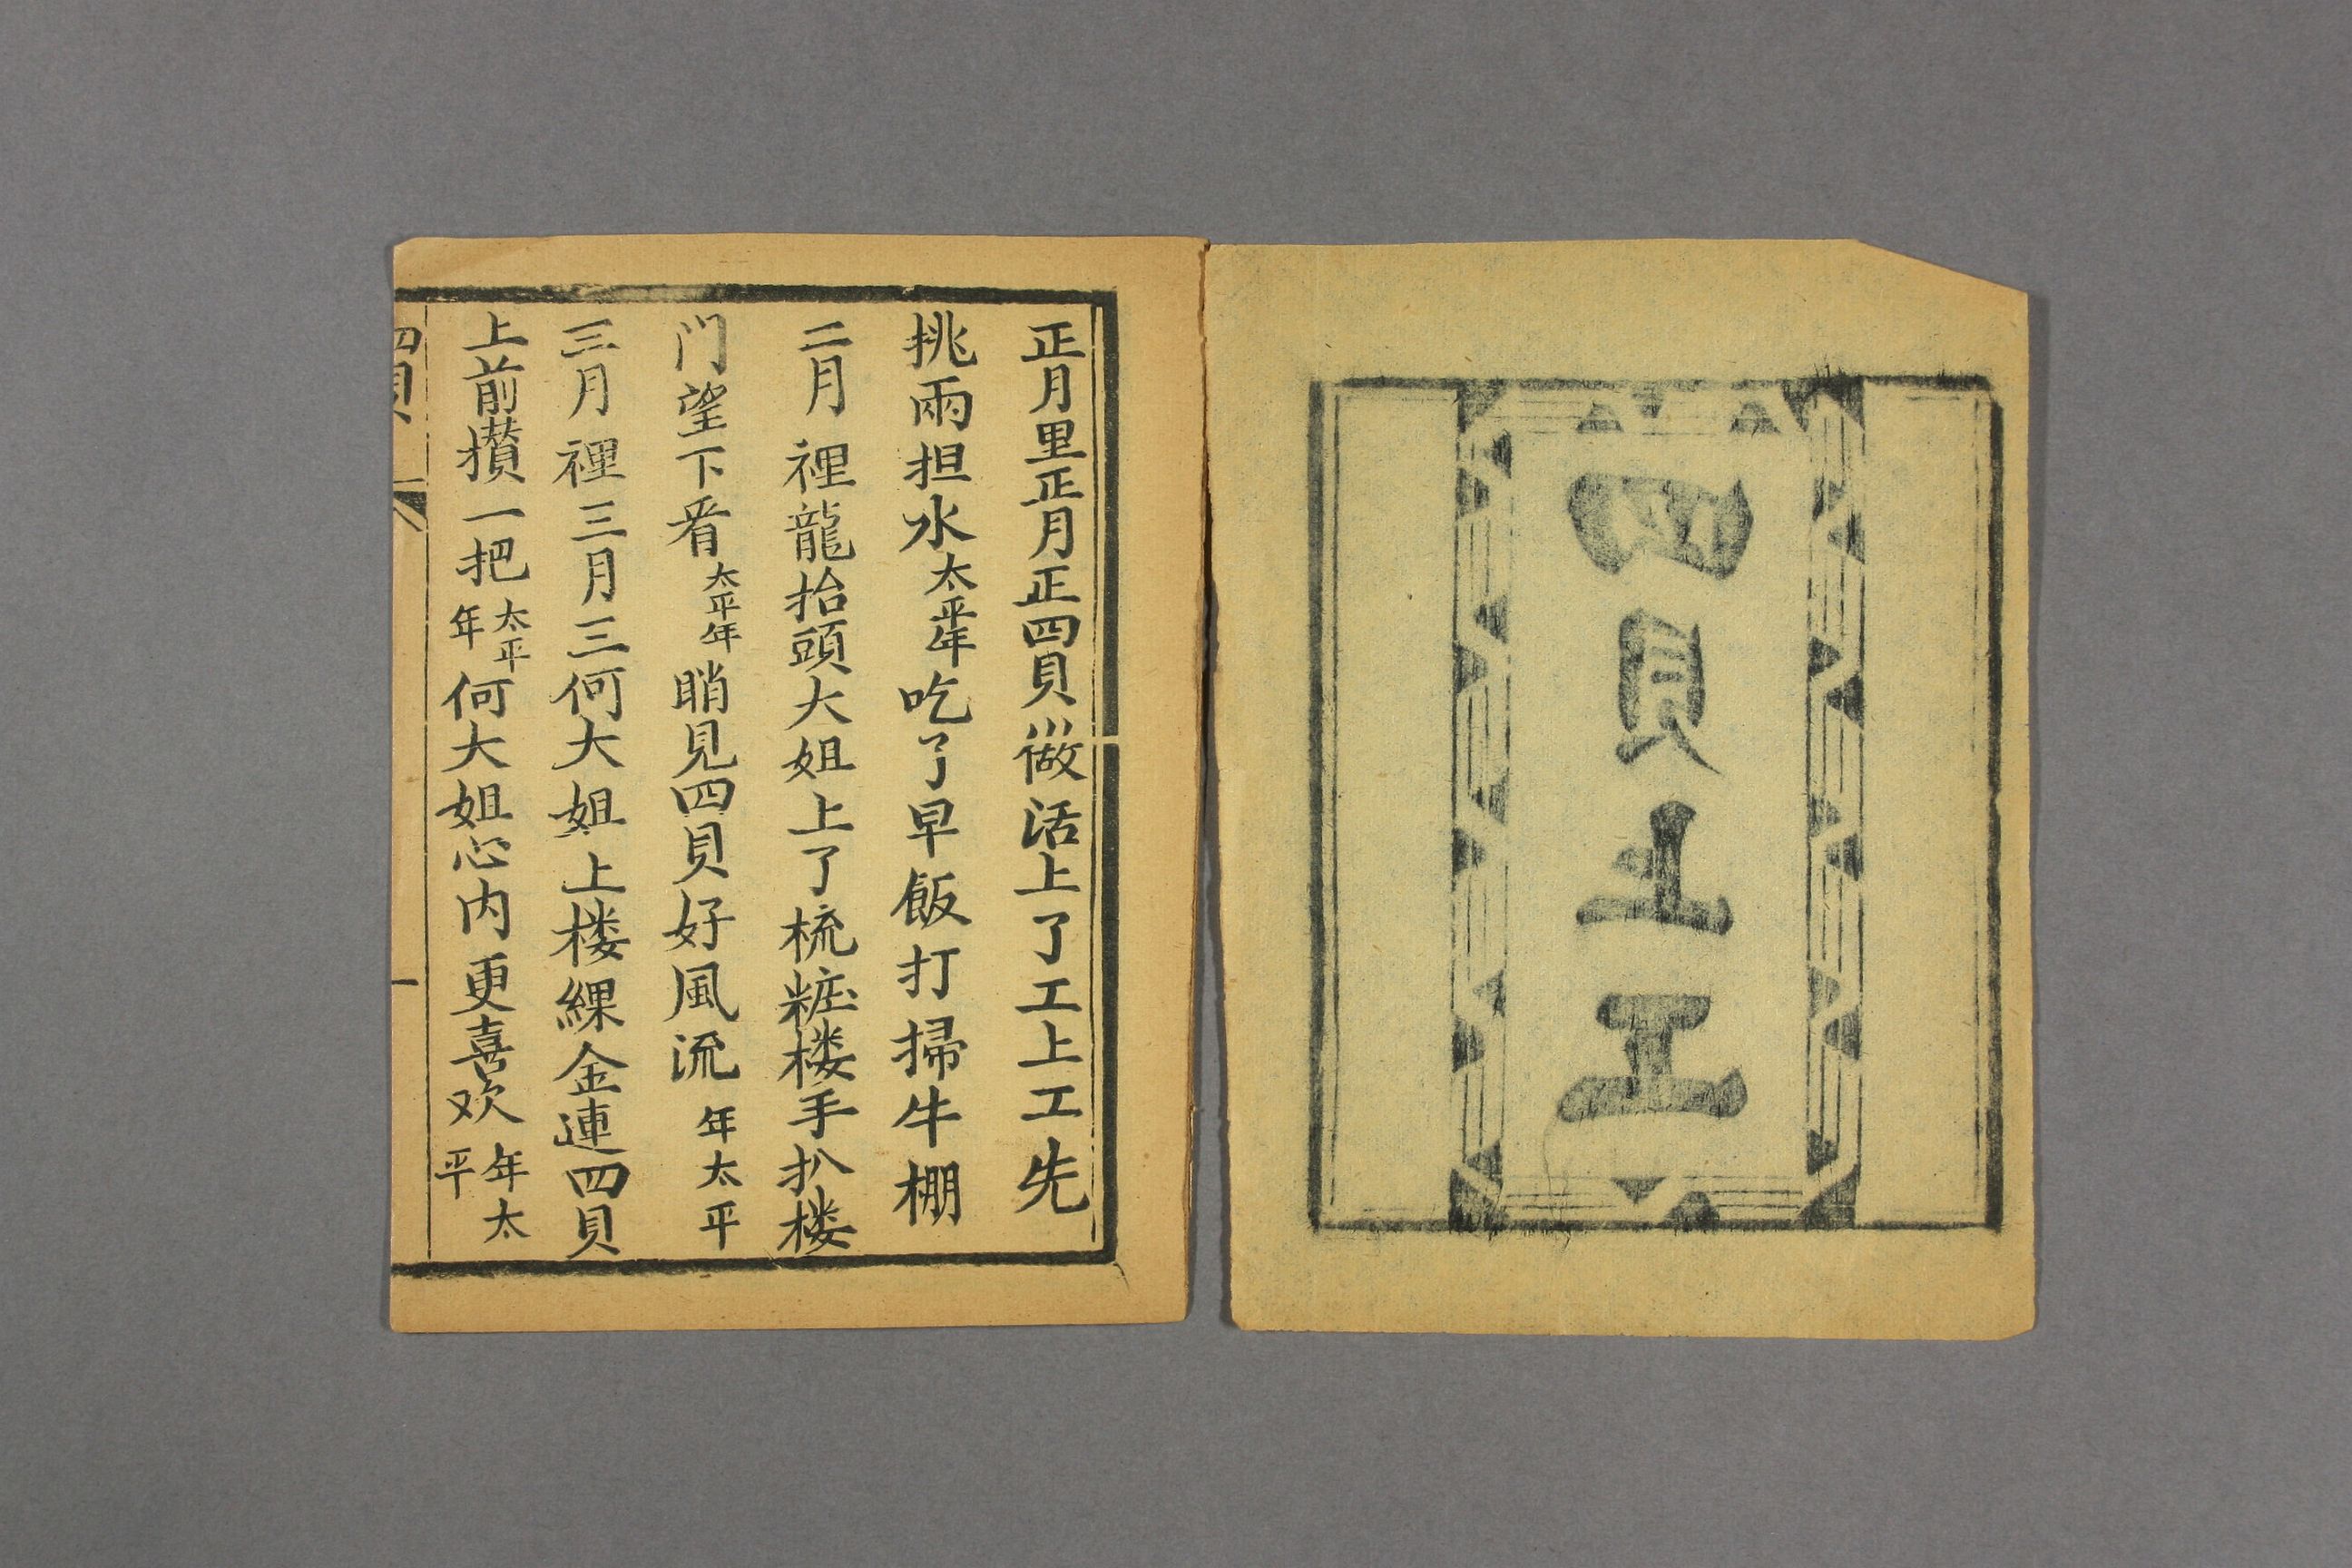 四貝上工
正月里正月正四貝做活上了工上工先
挑兩担水太平年吃了早飯打掃牛棚
二月裡龍抬頭大姐上了梳粧楼手扒楼
门望下看太平年睄見四貝好風流年太平
三月裡三月三何大姐上楼纙金連四貝
上前攅一把太平年何大姐心内更喜欢年太平
四貝
一